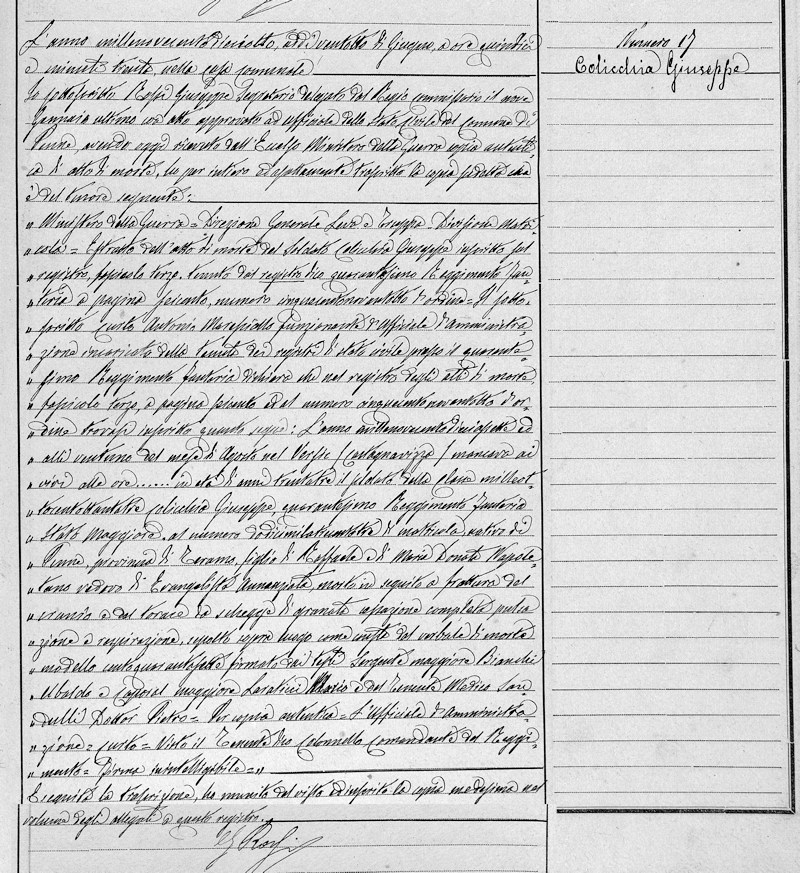 L'anno millenovecentodiciotto, addì ventotto di Giugno, a ore quindici
e minuti trenta, nella casa comunale.
Io sottoscritto Rossi Giuseppe Segretario delegato dal Regio commissario il nove
Gennaio ultimo con atto approvato ad ufficiale dello Stato Civile del comune di
Penne, avendo oggi ricevuto dall'Eccelso Ministero della Guerra copia autenti-
ca di atto di morte, ho per intero ed esattamente trascritto la copia suddetta che
è del tenore seguente:
" Ministero della Guerra = Direzione Generale Leva e Truppa - Divisione Matri
" cola = Estratto dell'atto di morte del Soldato Colicchia Giuseppe inscritto sul
" registro, fascicolo terzo, tenuto dal registro dico quarantesimo Reggimento Fan
" teria a pagina seicento, numero cinquecentonovantotto d'ordine = Il sotto-
" scritto Curto Antonio Maresciallo funzionante d'Ufficiale d'Amministra-
" zione incaricato della tenuta dei registri di stato civile presso il quaranta
" simo Reggimento fanteria dichiara che nel registro degli atti di morte,
" fascicolo terzo, a pagina seicento ed al numero cinquecentonovantotto d'or-
" dine trovasi inscritto quanto segue: L'anno millenovecentodiciasette ed
" alli ventuno del mese di Agosto nel Versic (Castagnavizza) mancava ai
" vivi alle ore ...... in età di anni trentatre il soldato della classe millest-
" tocentottantatre Colicchia Giuseppe quarantesimo Reggimento Fanteria
" Stato Maggiore, al numero di matricola, nativo di
" Penne, provincia di Teramo, figlio di Raffaele e di Maria Donata Napole-
" tano vedovo di Evangelista Annunziata, morto in seguito a frattura del
" cranio e del torace da schegge di granata cessazione completa pulsa
" zione e respirazione, sepolto sopra luogo come consta dal verbale di morte
" modello centoquarantasette firmato dai testi Sergente maggiore Bianchi
" Ubaldo e Caporal maggiore Mario e dal Tenente Medico San-
" dulli Dottor Pietro = Per copia autentica = L'Ufficiale d'Amministra-
" zione = Curto = Visto il Tenente dico Colonnello Comandante del Reggi-
" mento = Firma inintelligibile = "
Eseguita la trascrizione, ho munito del visto ed inserito la copia medesima nel
volume degli allegati a questo registro.
G Rossi
Numero 17
Colicchia Giuseppe